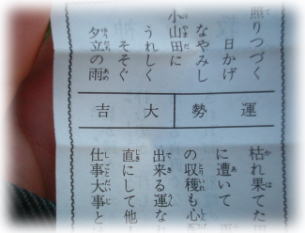 照りつづく
日かげ
なやみし
小山田に
うれしく
そそぐ
夕立の雨
運勢
大吉
枯れ果てた田
に遭いて
の収穫も心配
出来る運な
直にして他
仕事大事と